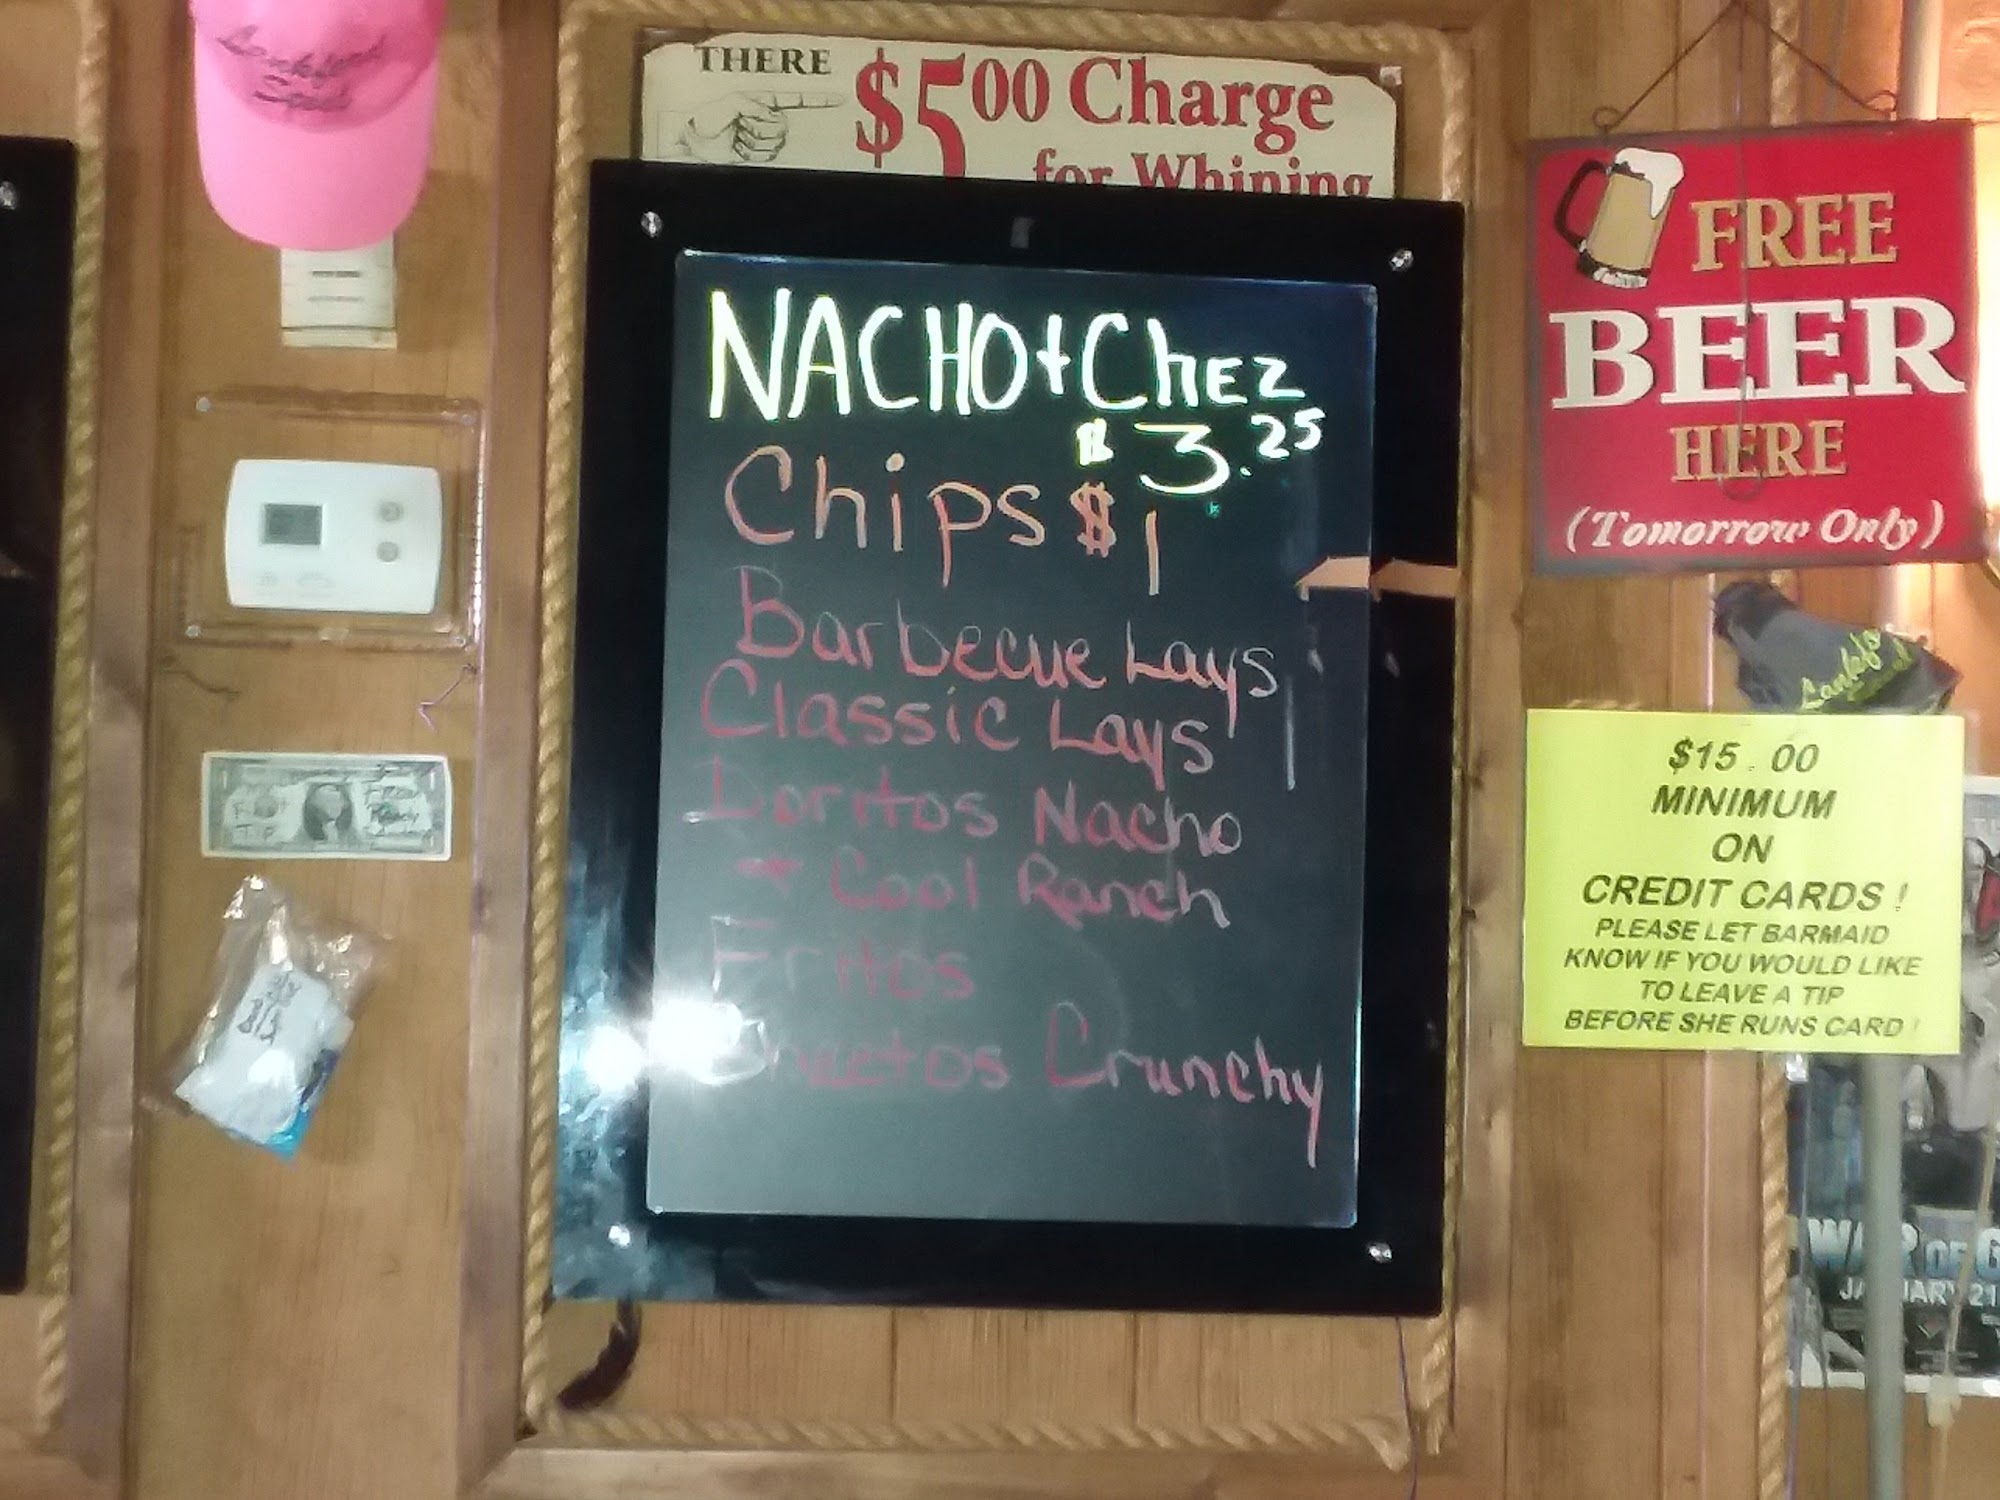 THERE
$5.00 Charge
for Whining
NACHO + ChEZ
$3.25
Chips $1
Barbecue Lays
Classic Lays
Doritos Nacho
+ Cool Ranch
Fritos
Cheetos Crunchy
FREE
BEER
HERE
(Tomorrow Only)
$15.00
MINIMUM
ON
CREDIT CARDS!
PLEASE LET BARMAID
KNOW IF YOU WOULD LIKE
TO LEAVE A TIP
BEFORE SHE RUNS CARD!
First
Tip
WAR OF G
JANUARY 21